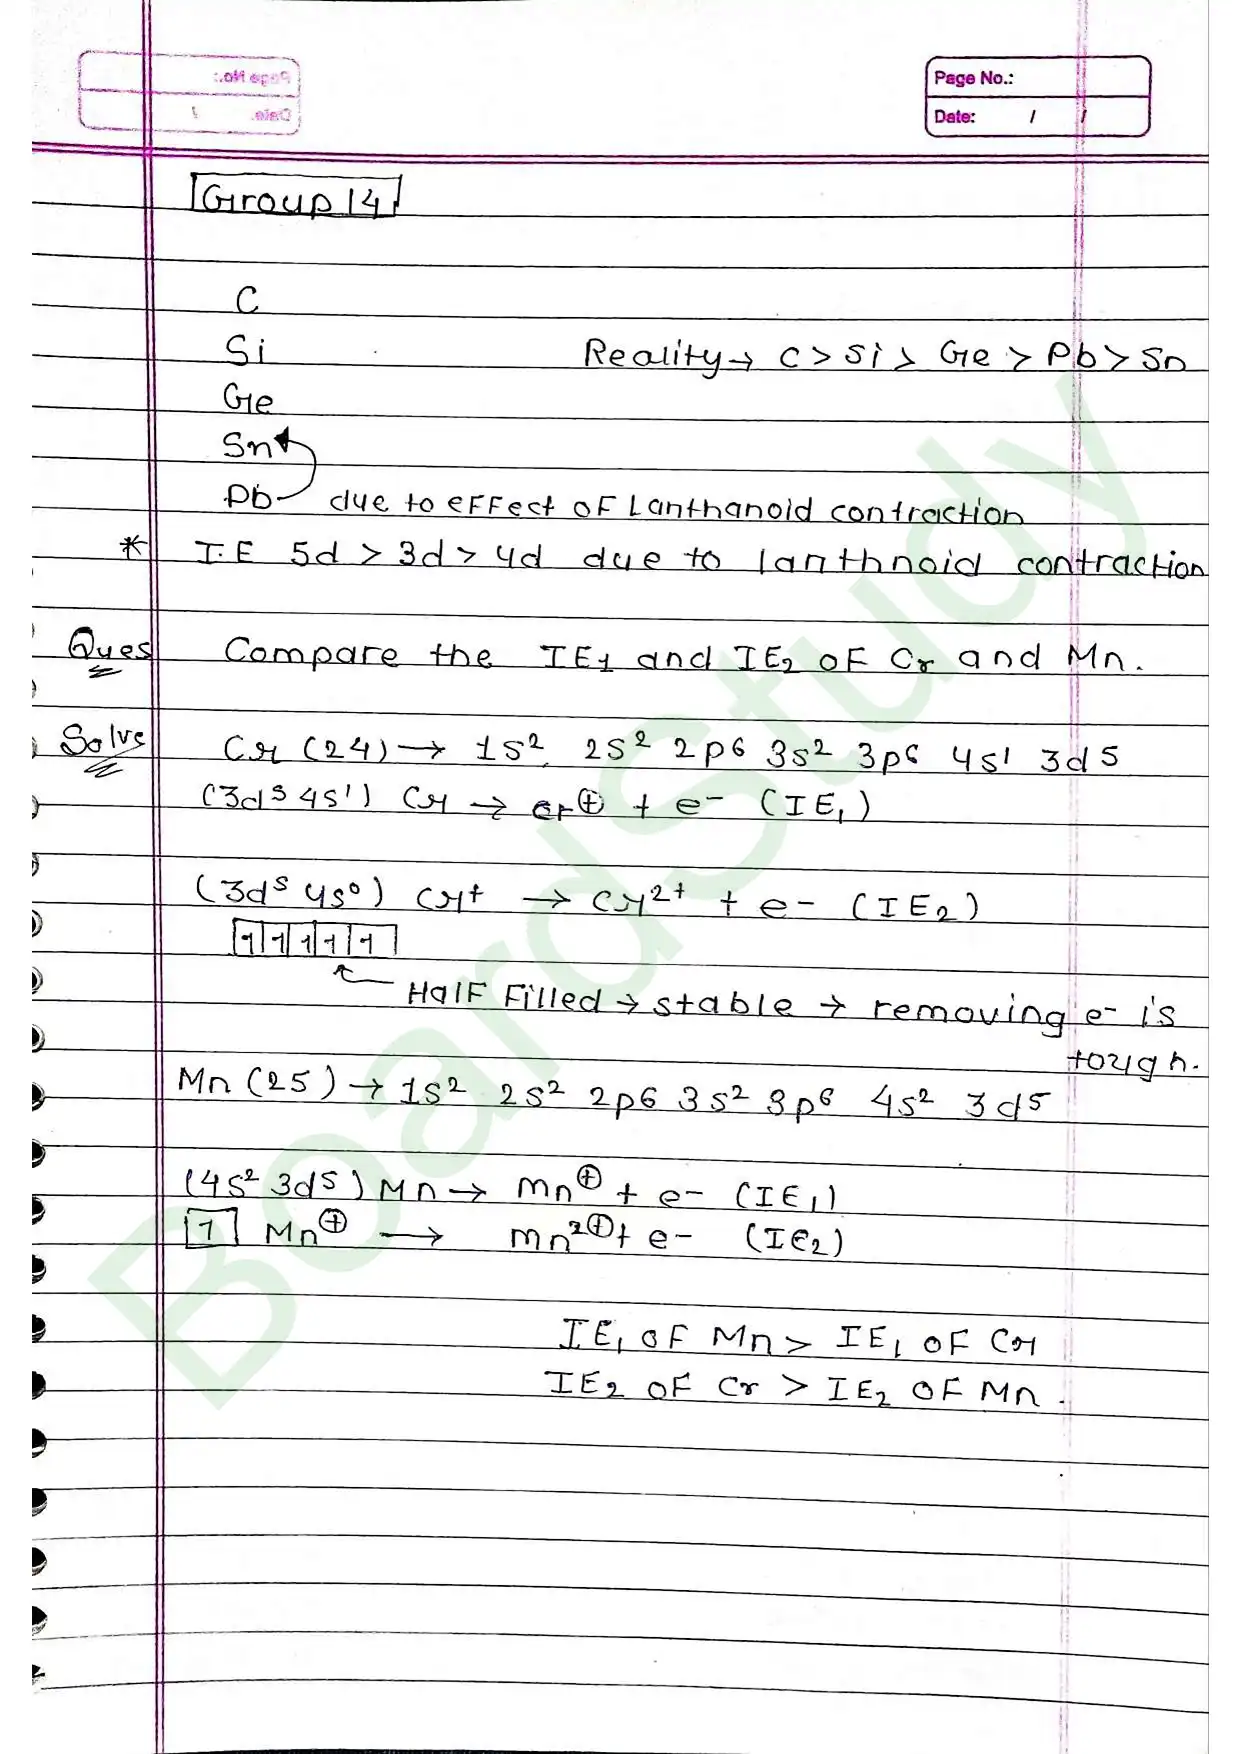 Page No.:
Date: / /
Page No.:
Date: /
Group 14
C
Si
Reality → C > Si > Ge > Pb > Sn
Ge
Sn
Pb due to effect of Lanthanoid contraction
* I.E 5d > 3d > 4d due to lanthnoid contraction
Ques Compare the IE₁ and IE₂ of Cr and Mn.
Solve Cr (24) → 1s² 2s² 2p6 3s² 3p6 4s¹ 3d5
(3d5 4s¹) Cr → Cr⊕ + e- (IE₁)
(3d5 4s⁰) Cr+ → Cr2+ + e- (IE₂)
1 1 1 1 1
Half Filled → stable → removing e- is
tough.
Mn (25) → 1s² 2s² 2p6 3s² 3p6 4s² 3d5
(4s² 3d5) Mn → mn⊕ + e- (IE₁)
1 Mn⊕ → mn²⊕ + e- (IE₂)
IE₁ of Mn > IE₁ of Cr
IE₂ of Cr > IE₂ of Mn.
BoardStudy